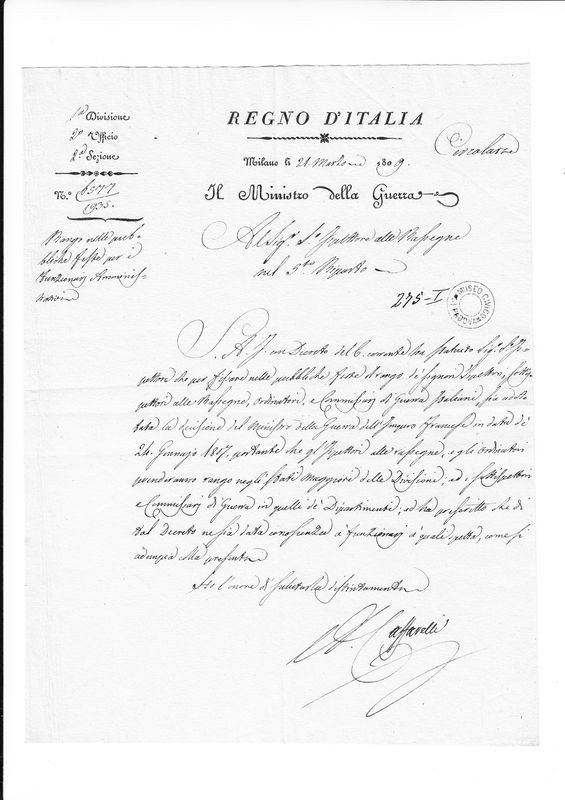 1.ª Divisione
2.º Ufficio
2.ª Sezione
N.º 6577
1935.
Rango nelle pub-
bliche feste per i
funzionarj Amminis-
trativi
REGNO D'ITALIA
Milano li 21 Marzo 1809.
Circolare
Il Ministro della Guerra
Al Sig.r Is.pettore alle Rassegne
nel 5.to Riparto
275-I
MUSEO CIVICO
PADOVA
S. A. I. con Decreto del 6. corrente ha statuito Sig.r Is-
pettore che per fissare nelle pubbliche feste il rango de' signori Ispettori, sottois-
pettori alle Rassegne, ordinatori, e Commissarj di Guerra Italiani, sia adot-
tata la decisione del Ministro della Guerra dell'Impero Francese in data de'
24. Gennajo 1807. portante che gl'Ispettori alle rassegne, e gli ordinatori
prenderanno rango negli stati maggiori delle Divisioni, ed i sottoispettori
e Commissarj di Guerra in quelli de' Dipartimenti, ed ha prescritto che di
tal Decreto ne sia data conoscenza a' funzionarj a' quali spetta, come si
adempie colla presente
Ho l'onore di salutarla distintamente
Caffarelli